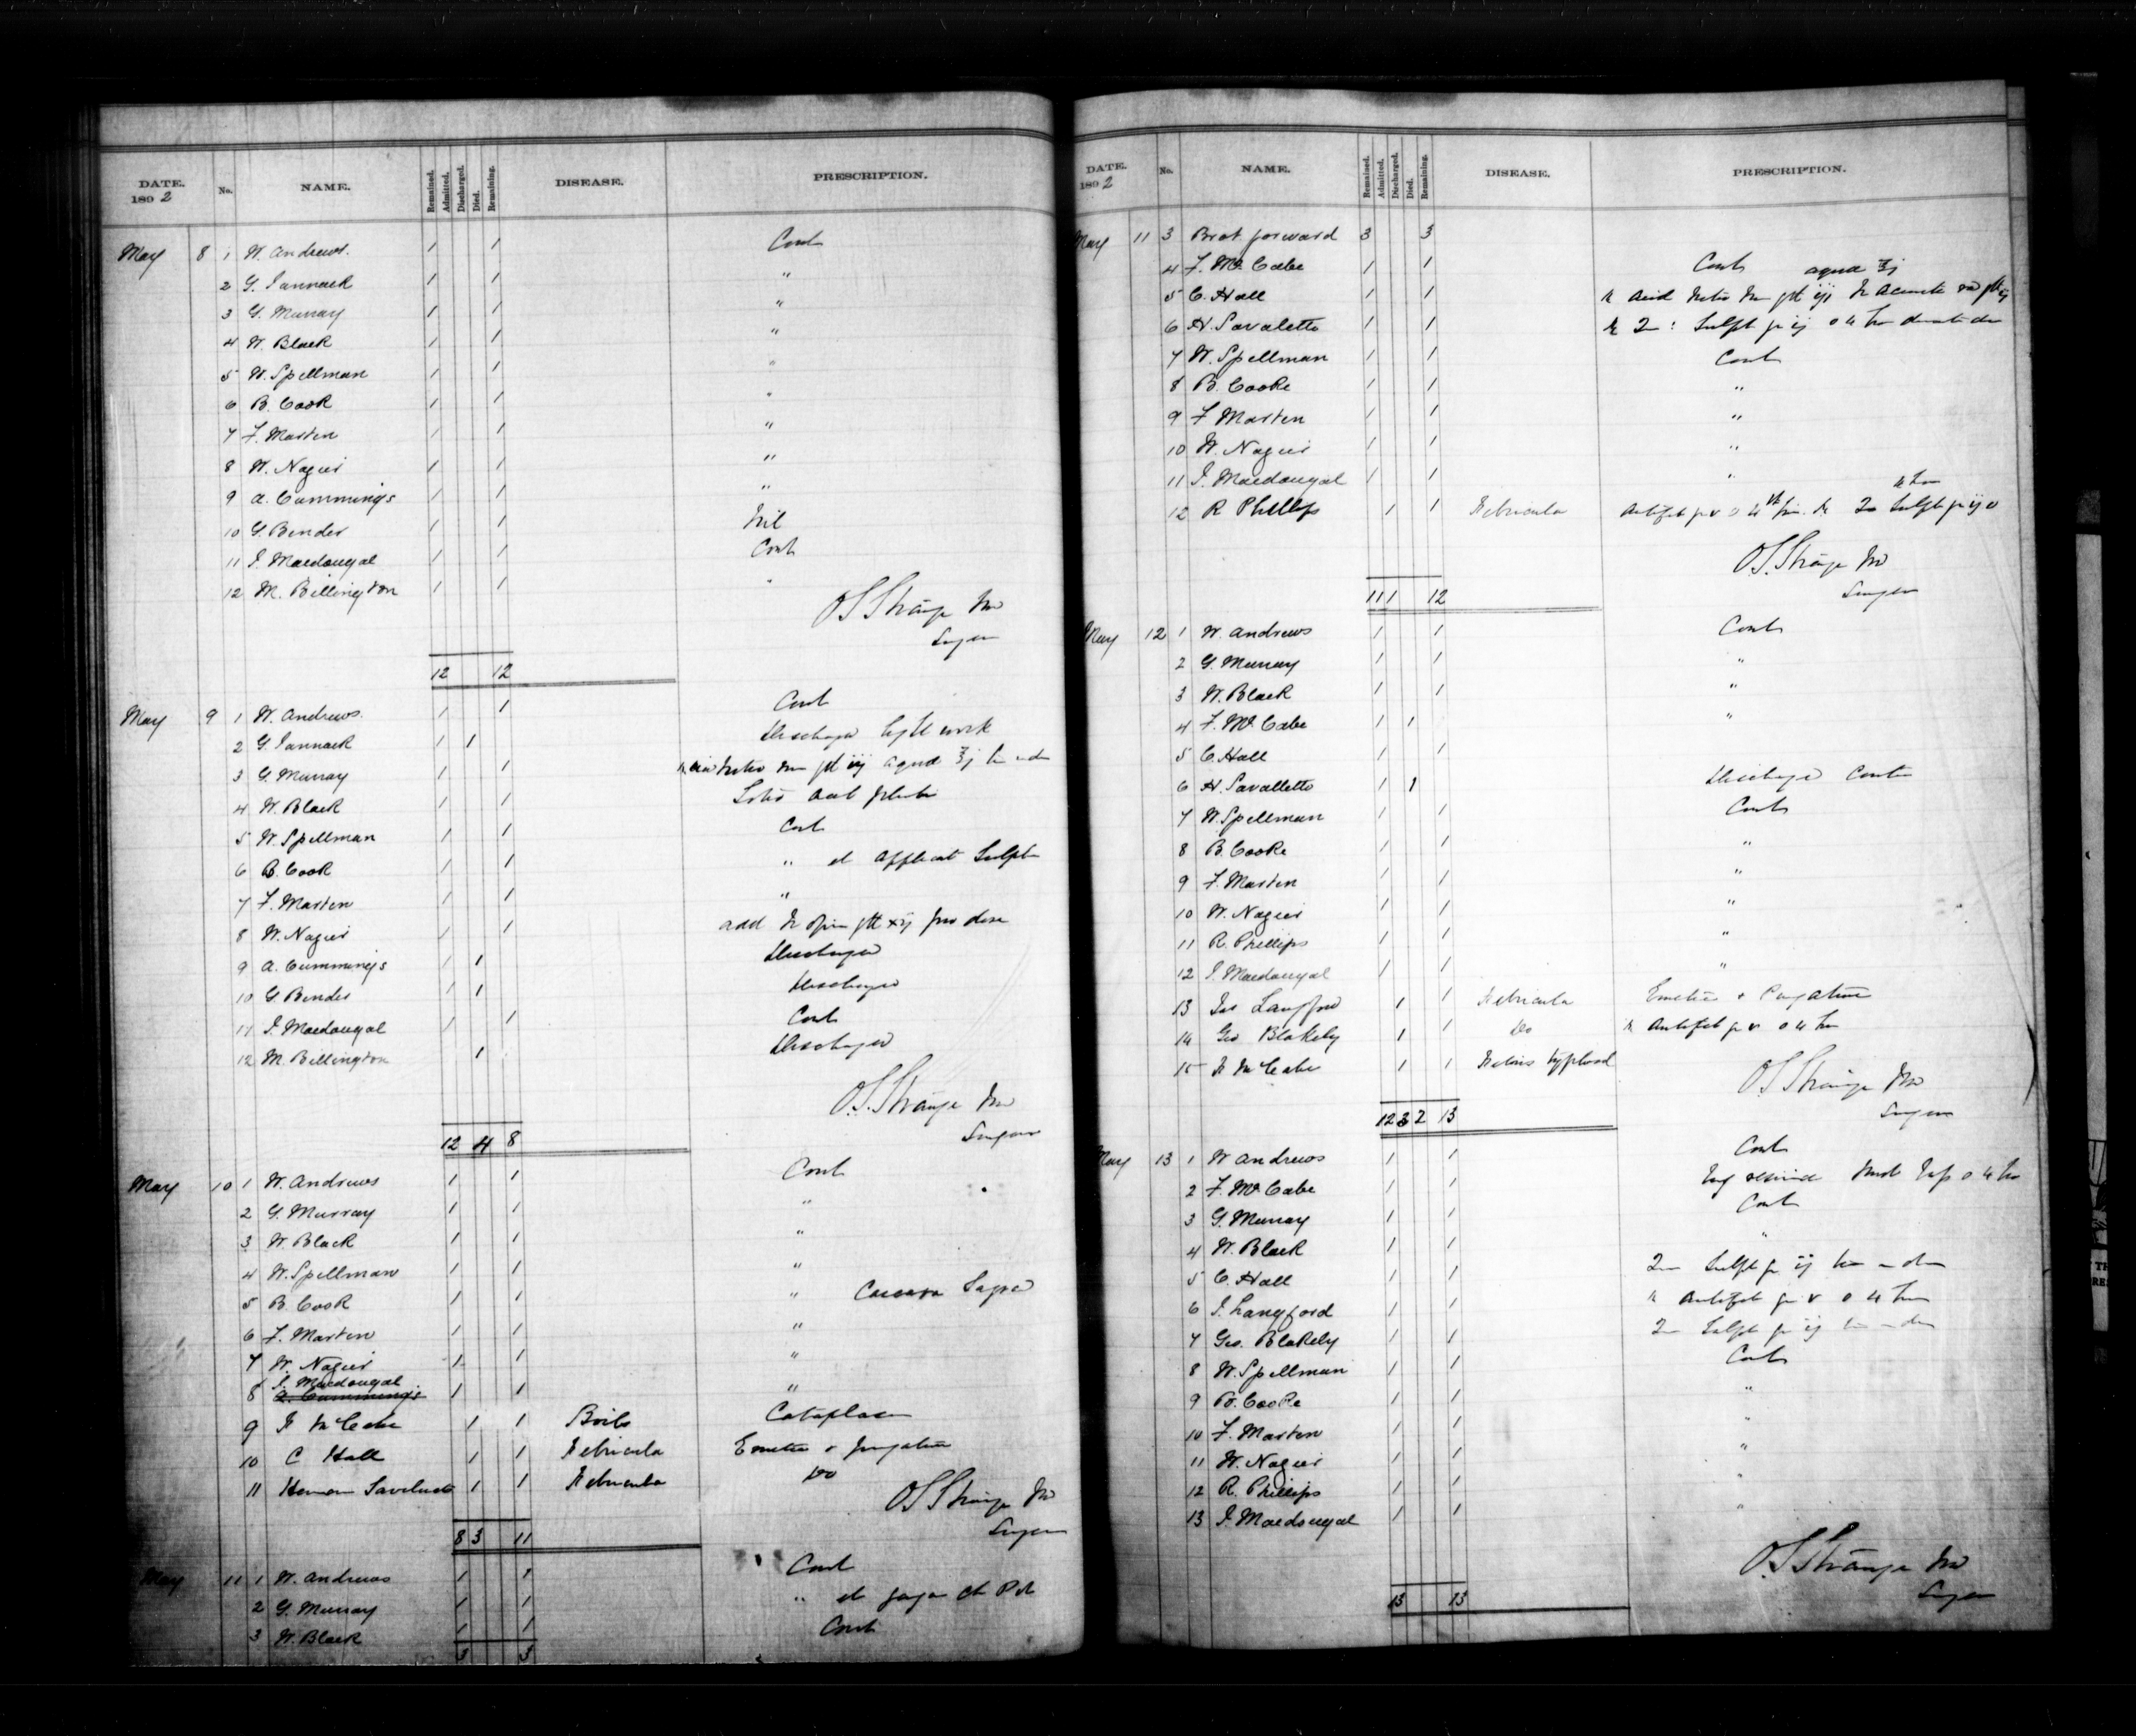 DATE. 1892 No. NAME. Remained. Admitted. Discharged. Died. Remaining. DISEASE. PRESCRIPTION.
May 8 1 W. Andrews. 1 1 Cont
2 G. Jannack 1 1 "
3 G. Murray 1 1 "
4 W. Black 1 1 "
5 W. Spellman 1 1 "
6 B. Cook 1 1 "
7 F. Marten 1 1 "
8 W. Nagier 1 1 "
9 A. Cummings 1 1 "
10 G. Bender 1 1 Nil
11 J. Macdougal 1 1 Cont
12 M. Billington 1 1 "
O S Strange MD
Surgeon
12 12
May 9 1 W. Andrews. 1 1 Cont
2 G. Jannack 1 1 Discharged light work
3 G. Murray 1 1 aqua ℥j
4 W. Black 1 1
5 W. Spellman 1 1 Cont
6 B. Cook 1 1 " et Applicat Sulph
7 F. Marten 1 1 "
8 W. Nagier 1 1 add
9 A. Cummings 1 1 Discharged
10 G. Bender 1 1 Discharged
11 J. Macdougal 1 1 Cont
12 M. Billington 1 Discharged
O. S. Strange MD
Surgeon
12 4 8
May 10 1 W. Andrews 1 1 Cont
2 G. Murray 1 1 "
3 W. Black 1 1 "
4 W. Spellman 1 1 "
5 B. Cook 1 1 " Cascara Sagrad
6 F. Marten 1 1 "
7 W. Nagier 1 1 "
J. Macdougal
8 A. Cummings 1 1 "
9 F McCabe 1 1 Boils Cataplasm
10 C Hall 1 1 Febricula Emetic & purgative
11 Herman 1 1 Febricula Do
O S Strange MD
Surgeon
8 3 11
May 11 1 W. Andrews 1 1 Cont
2 G. Murray 1 1 " et
3 W. Black 1 1 Cont
3 3
DATE. 1892 No. NAME. Remained. Admitted. Discharged. Died. Remaining. DISEASE. PRESCRIPTION.
May 11 3 Brot forward 3 3
4 F. McCabe 1 1 Cont aqua ℥j
5 C. Hall 1 1
6 H. Savaletto 1 1
7 W. Spellman 1 1 Cont
8 B. Cooke 1 1 "
9 F. Marten 1 1 "
10 W. Nagier 1 1 "
11 J. Macdougal 1 1 "
12 R Phillips 1 1 Febricula
O. S. Strange MD
Surgeon
11 1 12
May 12 1 W. Andrews 1 1 Cont
2 G. Murray 1 1 "
3 W. Black 1 1 "
4 F. McCabe 1 1 "
5 C. Hall 1 1
6 H. Savalletto 1 1 Discharged
7 W. Spellman 1 1 Cont
8 B. Cooke 1 1 "
9 F. Marten 1 1 "
10 W. Nagier 1 1 "
11 R. Phillips 1 1 "
12 J. Macdougal 1 1 "
13 Jas Langford 1 1 Febricula Emetic & Purgative
14 Geo Blakely 1 1 Do
15 F McCabe 1 1 Febris typhoid
O S Strange MD
Surgeon
12 3 2 13
May 13 1 W Andrews 1 1 Cont
2 F. McCabe 1 1
3 G. Murray 1 1 Cont
4 W. Black 1 1 "
5 C. Hall 1 1
6 J. Langford 1 1
7 Geo. Blakely 1 1
8 W. Spellman 1 1 Cont
9 B. Cooke 1 1 "
10 F. Marten 1 1 "
11 W. Nagier 1 1 "
12 R. Phillips 1 1 "
13 J. Macdougal 1 1 "
O. S Strange MD
Surgeon
13 13